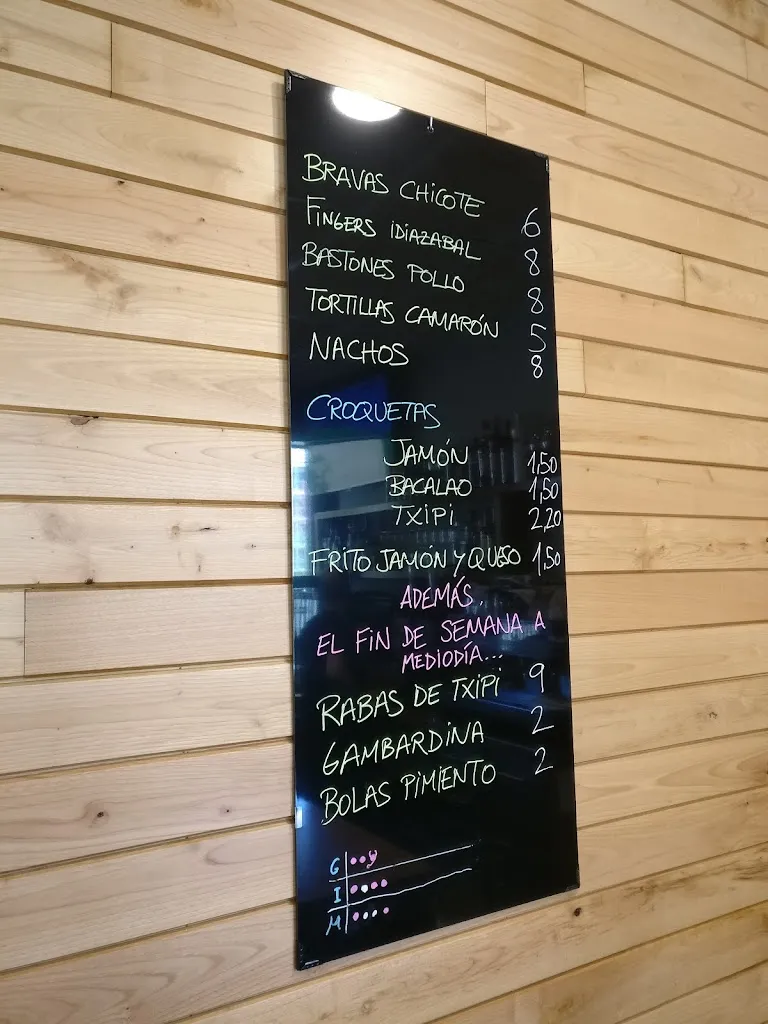 BRAVAS CHICOTE 6
FINGERS IDIAZABAL 8
BASTONES POLLO 8
TORTILLAS CAMARÓN 5
NACHOS 8
CROQUETAS
JAMÓN 1,50
BACALAO 1,50
TXIPI 2,20
FRITO JAMÓN Y QUESO 1,50
ADEMÁS.
EL FIN DE SEMANA A
MEDIODÍA...
RABAS DE TXIPI 9
GAMBARDINA 2
BOLAS PIMIENTO 2
G
I
M